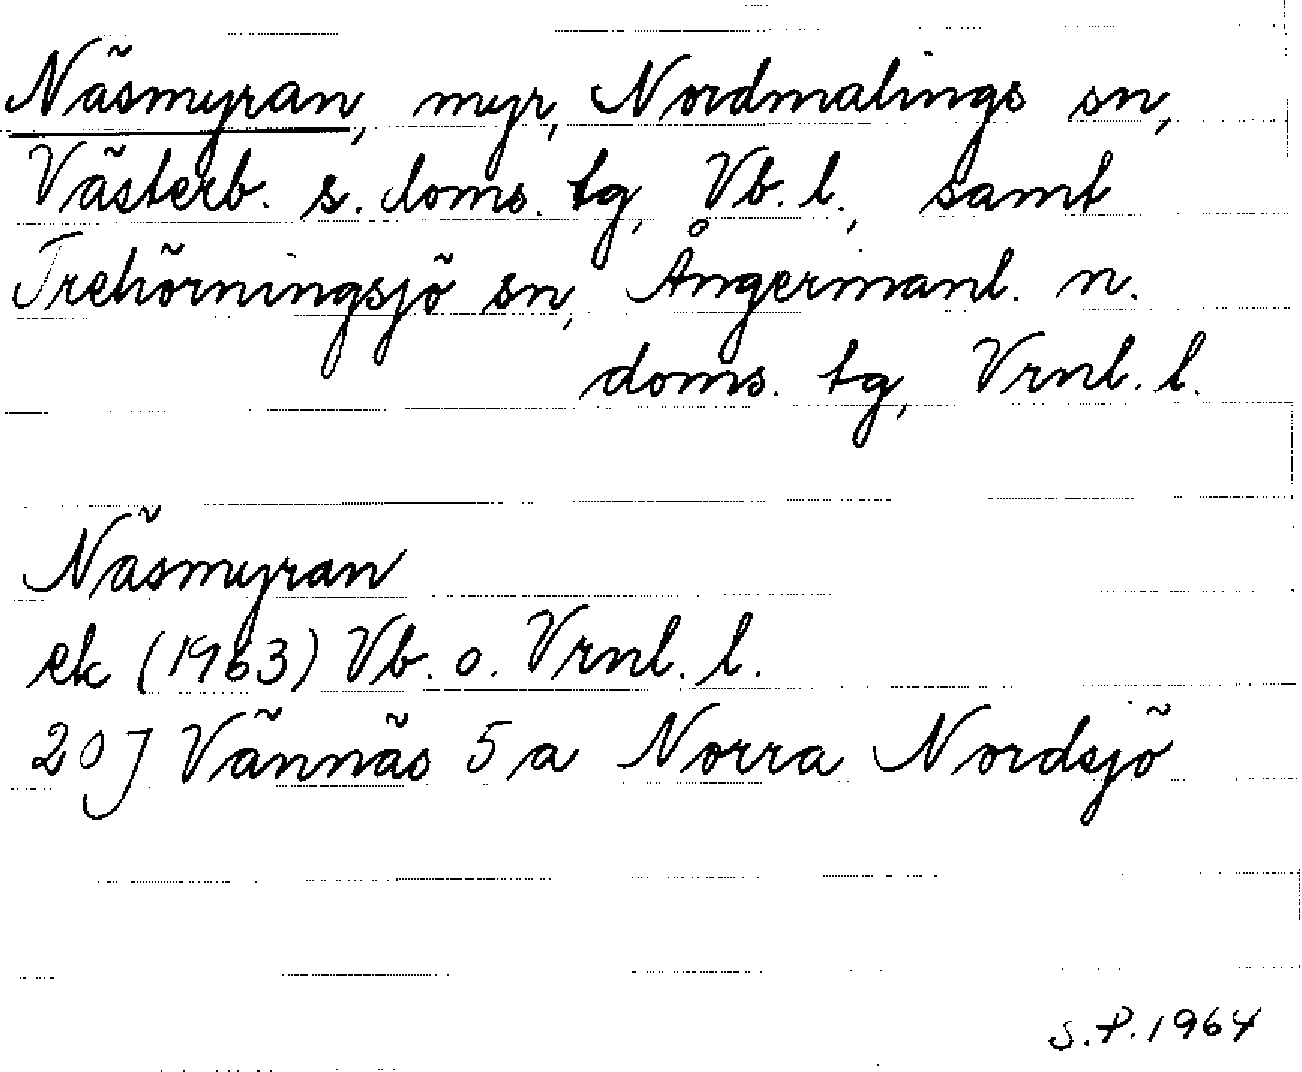 Näsmyran, myr, Nordmalings sn,
Västerb. s. doms. tg, Vb. l., samt
Trehörningsjö sn, Ångermanl. n.
doms. tg, Vrnl. l.
Näsmyran
ek (1963) Vb. o. Vrnl. l.
20J Vännäs 5a Norra Nordsjö
S.P.1964